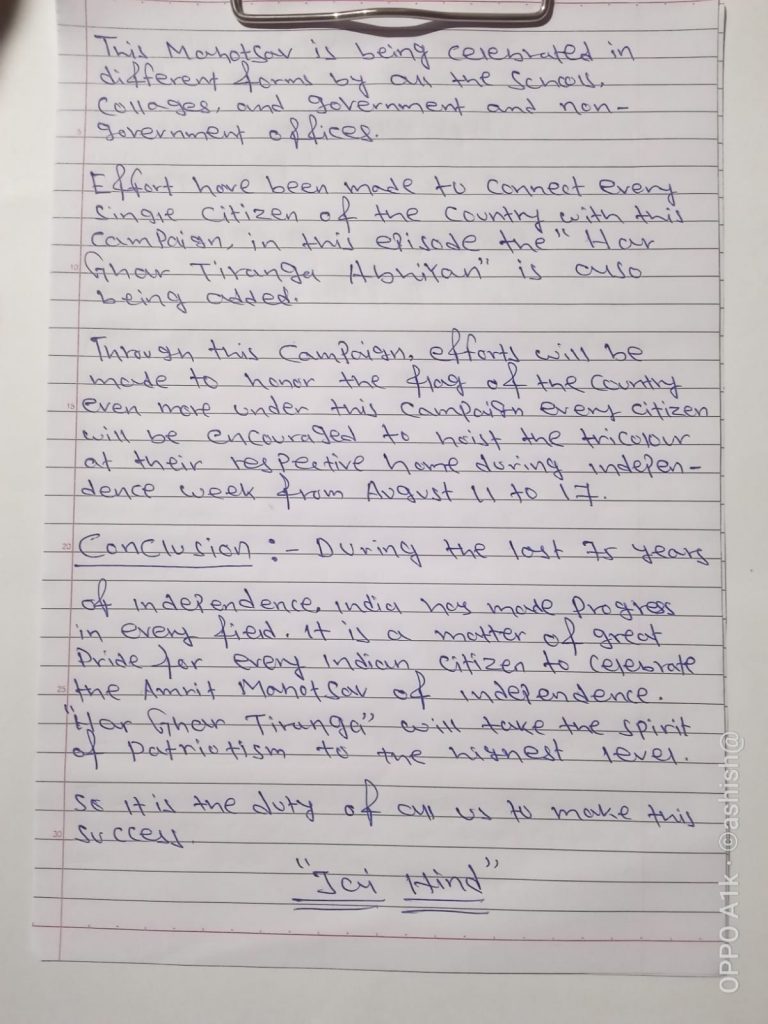 This Mahotsav is being celebrated in
different forms by all the schools,
Collages, and government and non-
government offices.
Effort have been made to connect every
single citizen of the country with this
campaign, in this episode the "Har
Ghar Tiranga Abhiyan" is also
being added.
Through this campaign, efforts will be
made to honor the flag of the country
even more under this campaign every citizen
will be encouraged to hoist the tricolour
at their respective home during indepen-
dence week from August 11 to 17.
Conclusion :- During the last 75 years
of independence, india has made progress
in every field. It is a matter of great
Pride for every Indian citizen to celebrate
the Amrit Mahotsav of independence.
"Har Ghar Tiranga" will take the spirit
of Patriotism to the highest level.
so it is the duty of all us to make this
success
"Jai Hind"
OPPO A1k · @ashish@
5
10
15
20
25
30